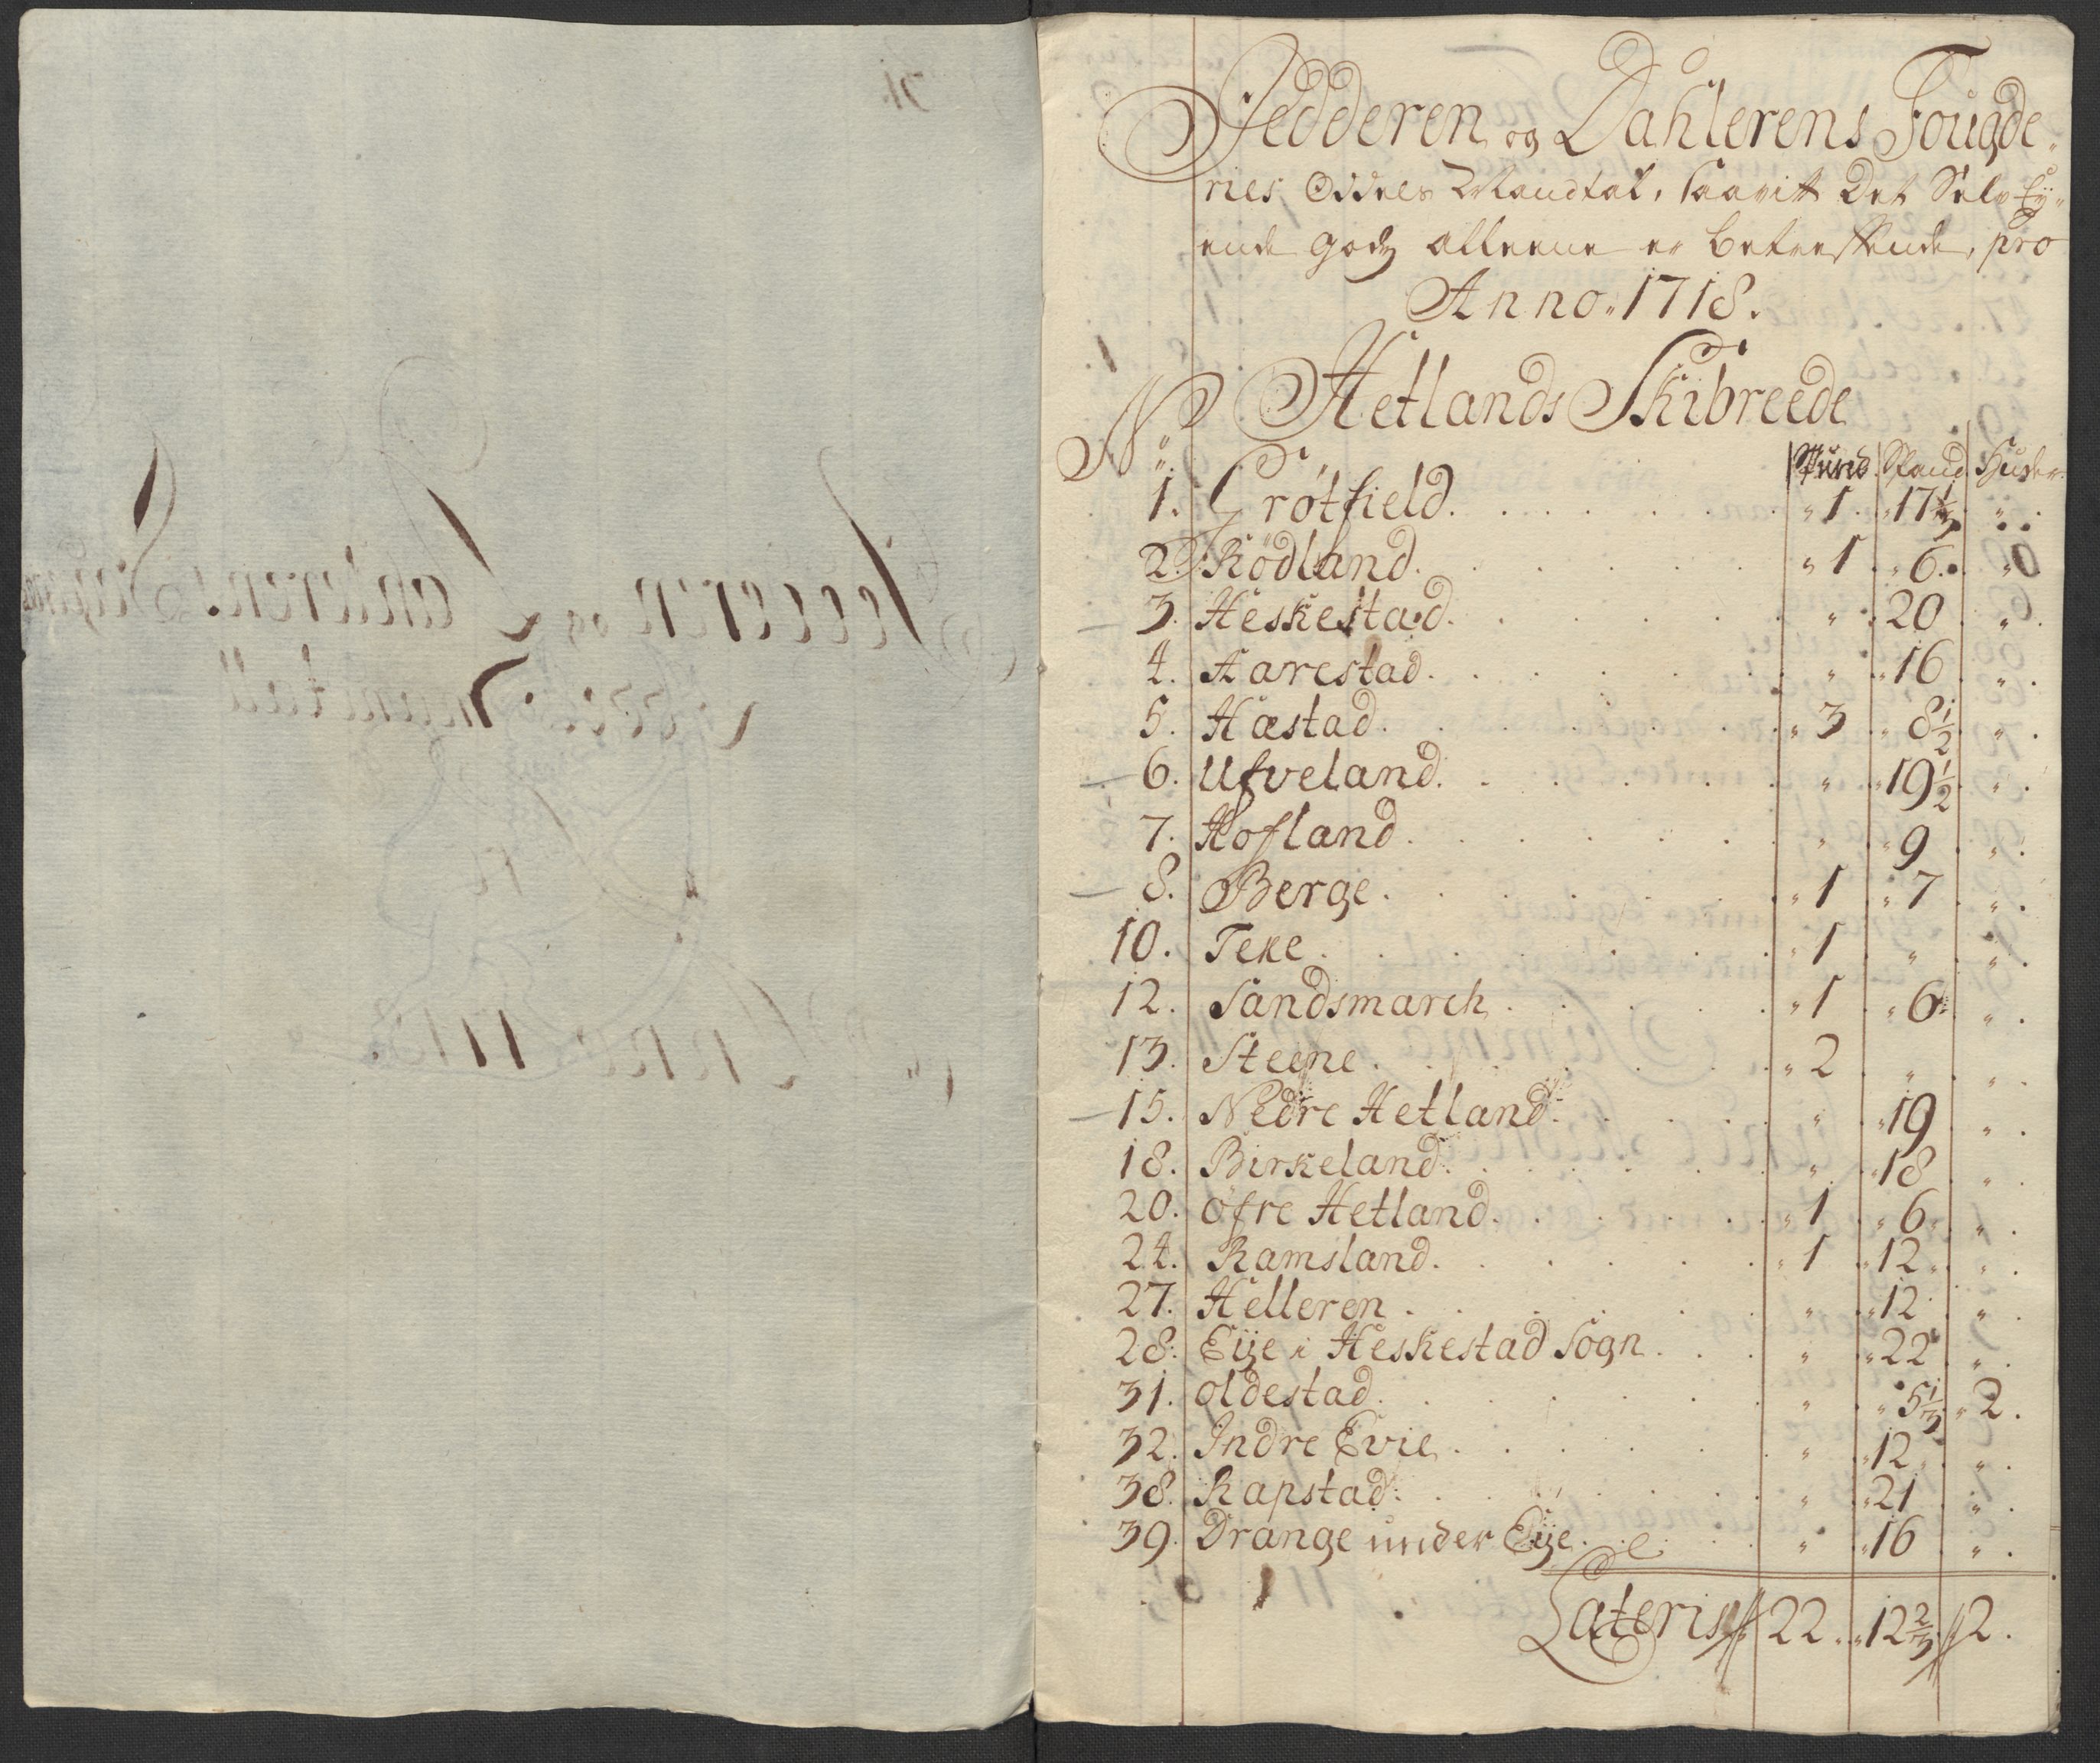 Jedderen og Dahlerens Fougde-
ries Oddels Mandtal, saavit Det Selv Ey-
ende godz alleene er betreffende, pro
Anno. 1718.
Hetlands Skibreede
No. Spand Huder
1. Grøtfield. 1. 17 1/3.
2. Rødland. 1. 6.
3. Heskestad. 20
4. Aarestad. 16
5. Hæstad. 3 8 1/2
6. Ufveland. 19 1/2
7. Hofland. 9
8. Berge. 1 7
10. Teke. 1
12. Sandsmarch. 1 6
13. Steene. 2
15. Nedre Hetland. 19
18. Birkeland. 18
20. Øfre Hetland. 1 6
24. Ramsland. 1 12
27. Helleren. 12
28. Eije i Heskestad Sogn. 22
31. Oldestad. 5 1/3 2.
32. Indre Evie. 12
38. Rapstad. 21
39. Drange under Eije. 16
Lateris 22. 12 2/3 2.